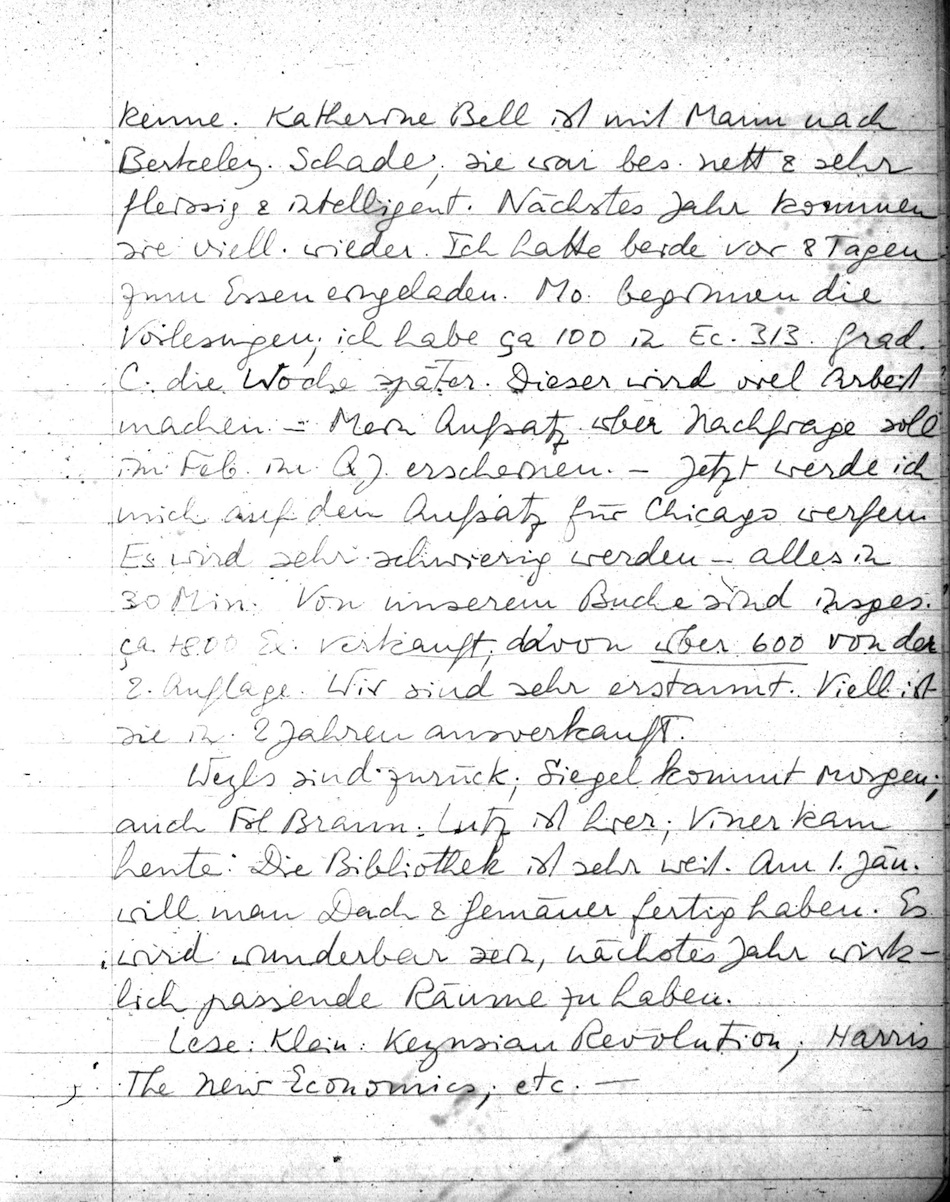 kenne. Katherine Bell ist mit Mann nach
Berkeley. Schade, sie war bes. nett & sehr
fleissig & intelligent. Nächstes Jahr kommen
sie viell. wieder. Ich hatte beide vor 8 Tagen
zum Essen eingeladen. Mo. beginnen die
Vorlesungen; ich habe ça 100 in Ec. 313. Grad.
C. die Woche später. Dieser wird viel Arbeit
machen. – Mein Aufsatz über Nachfrage soll
im Feb. im QJ. erscheinen. – Jetzt werde ich
mich auf den Aufsatz für Chicago werfen.
Es wird sehr schwierig werden – alles in
30 Min. Von unserem Buche sind insges.
ça Ex. verkauft, davon über 600 von der
2. Auflage. Wir sind sehr erstaunt. Viell. ist
sie in 2 Jahren ausverkauft.
Weyls sind zurück; Siegel kommt morgen;
auch Frl Braun. Lutz ist hier; Viner kam
heute. Die Bibliothek ist sehr weit. Am 1. Jän.
will man Dach & Gemäuer fertig haben. Es
wird wunderbar sein, nächstes Jahr wirk-
lich passende Räume zu haben.
Lese: Klein: Keynsian Revolution, Harris
The New Economics, etc. —